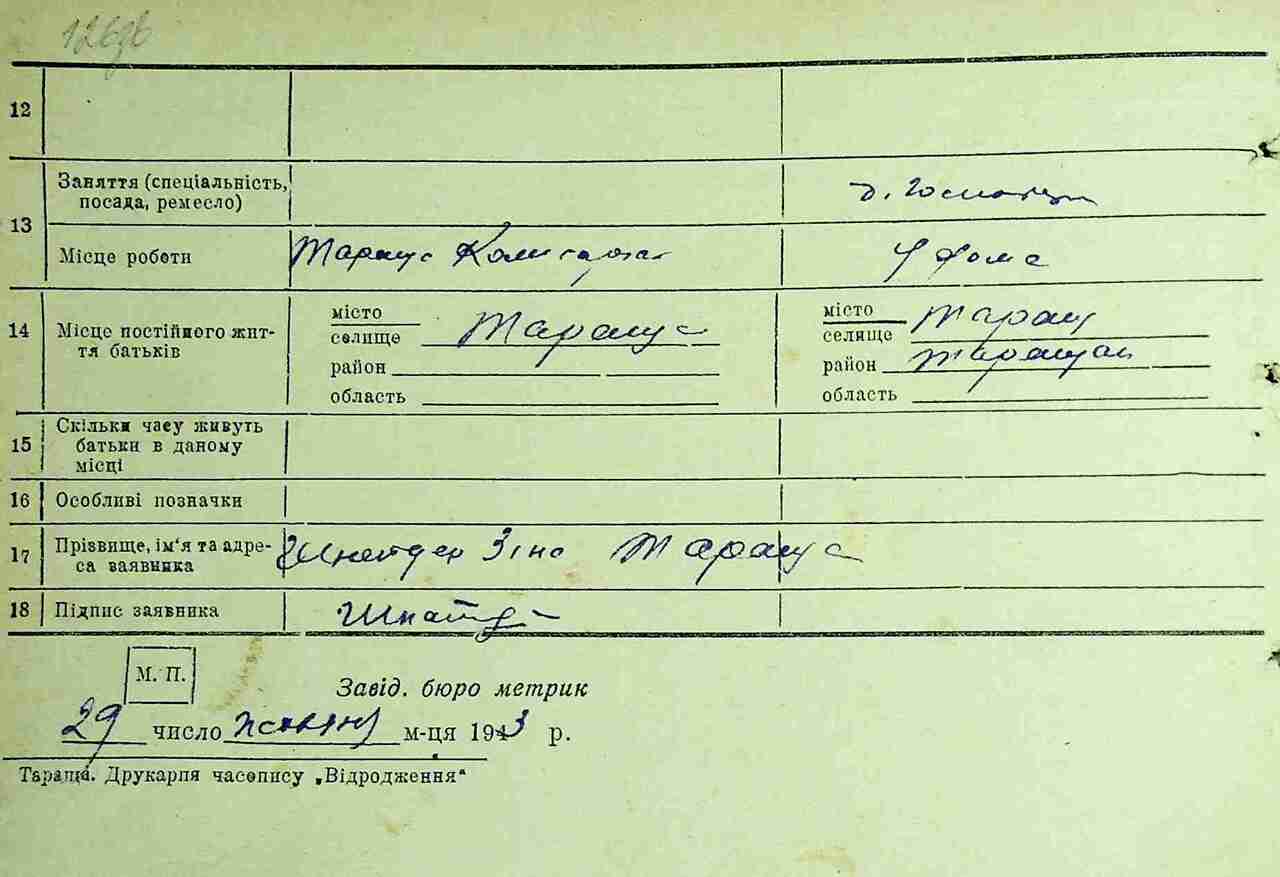 126зв
12
13 Заняття (спеціальність, посада, ремесло) д. Господар
Місце роботи Тараща У дома
14 Місце постійного життя батьків
місто Тараща місто Таращ
селище селище
район район Таращан
область область
15 Скільки часу живуть батьки в даному місці
16 Особливі позначки
17 Прізвище, ім'я та адреса заявника Шнайдер Зіна Тараща
18 Підпис заявника Шнайд
М. П.
Завід. бюро метрик
29 число жовтня м-ця 1943 р.
Тараща. Друкарня часопису „Відродження“